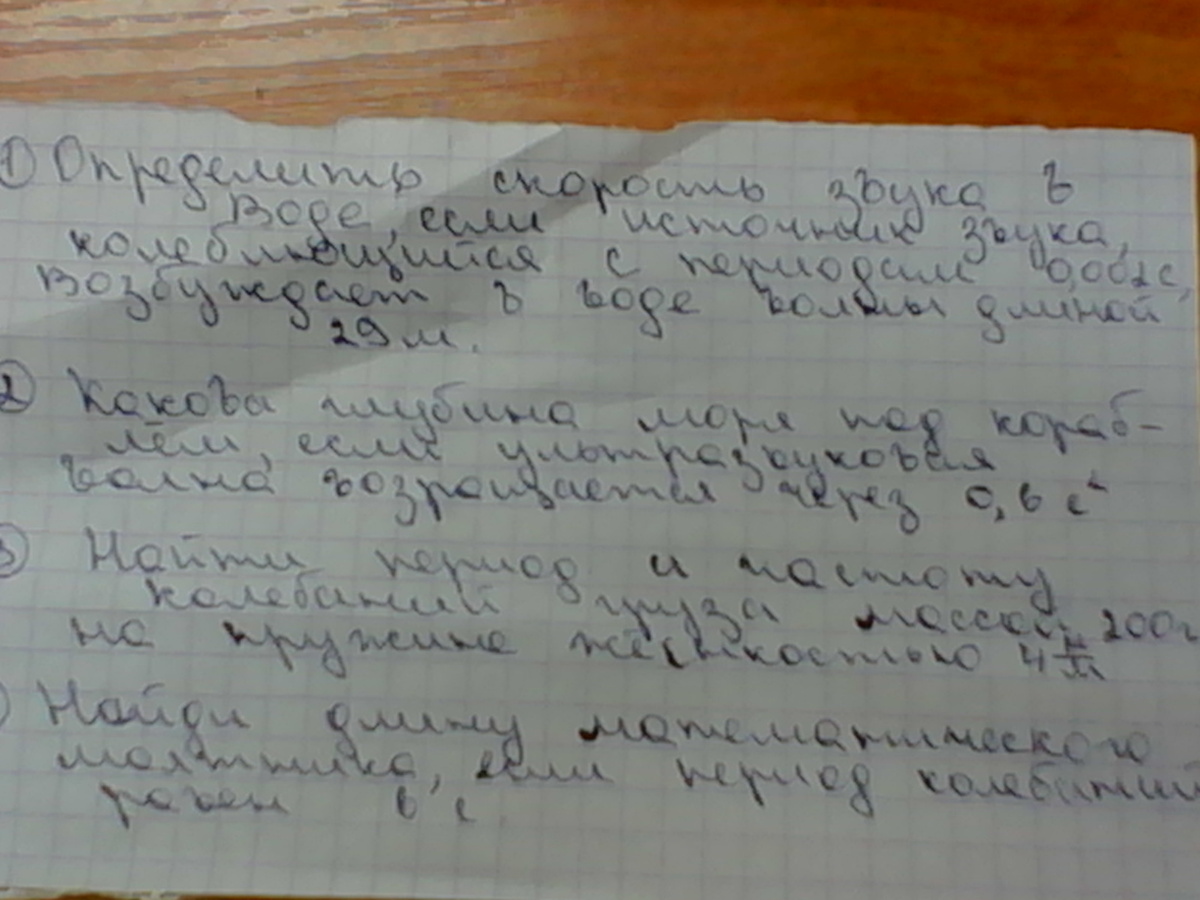 ① Определить скорость звука в
воде, если источник звука,
колеблющийся с периодам 0,002с,
возбуждает в воде волны длиной
2,9 м.
② Какова глубина моря под кораб-
лём, если ультразвуковая
волна возращается через 0,6 с
3 Найти период и частоту
колебаний груза массой 200г
на пружине жёсткостью 4 Н/м
Найди длину математического
маятника, если период колебаний
равен 6 с